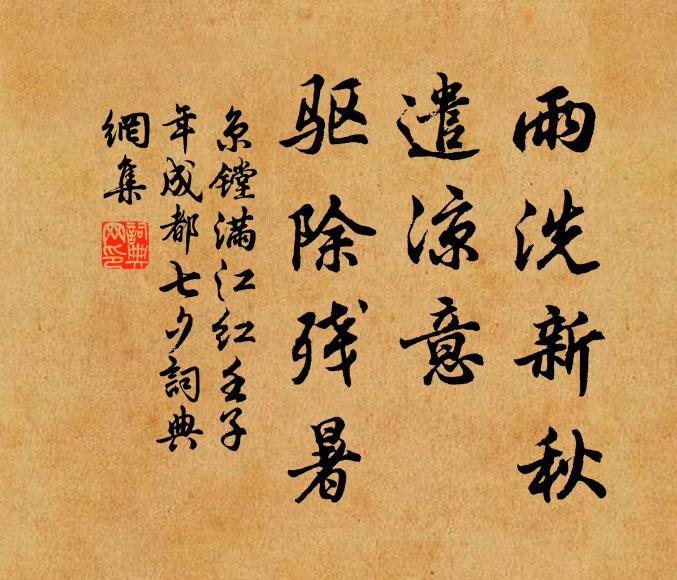 雨洗新秋
遣凉意
驱除残暑
京镗满江红壬子
年成都七夕詞典
網集
詞典網印